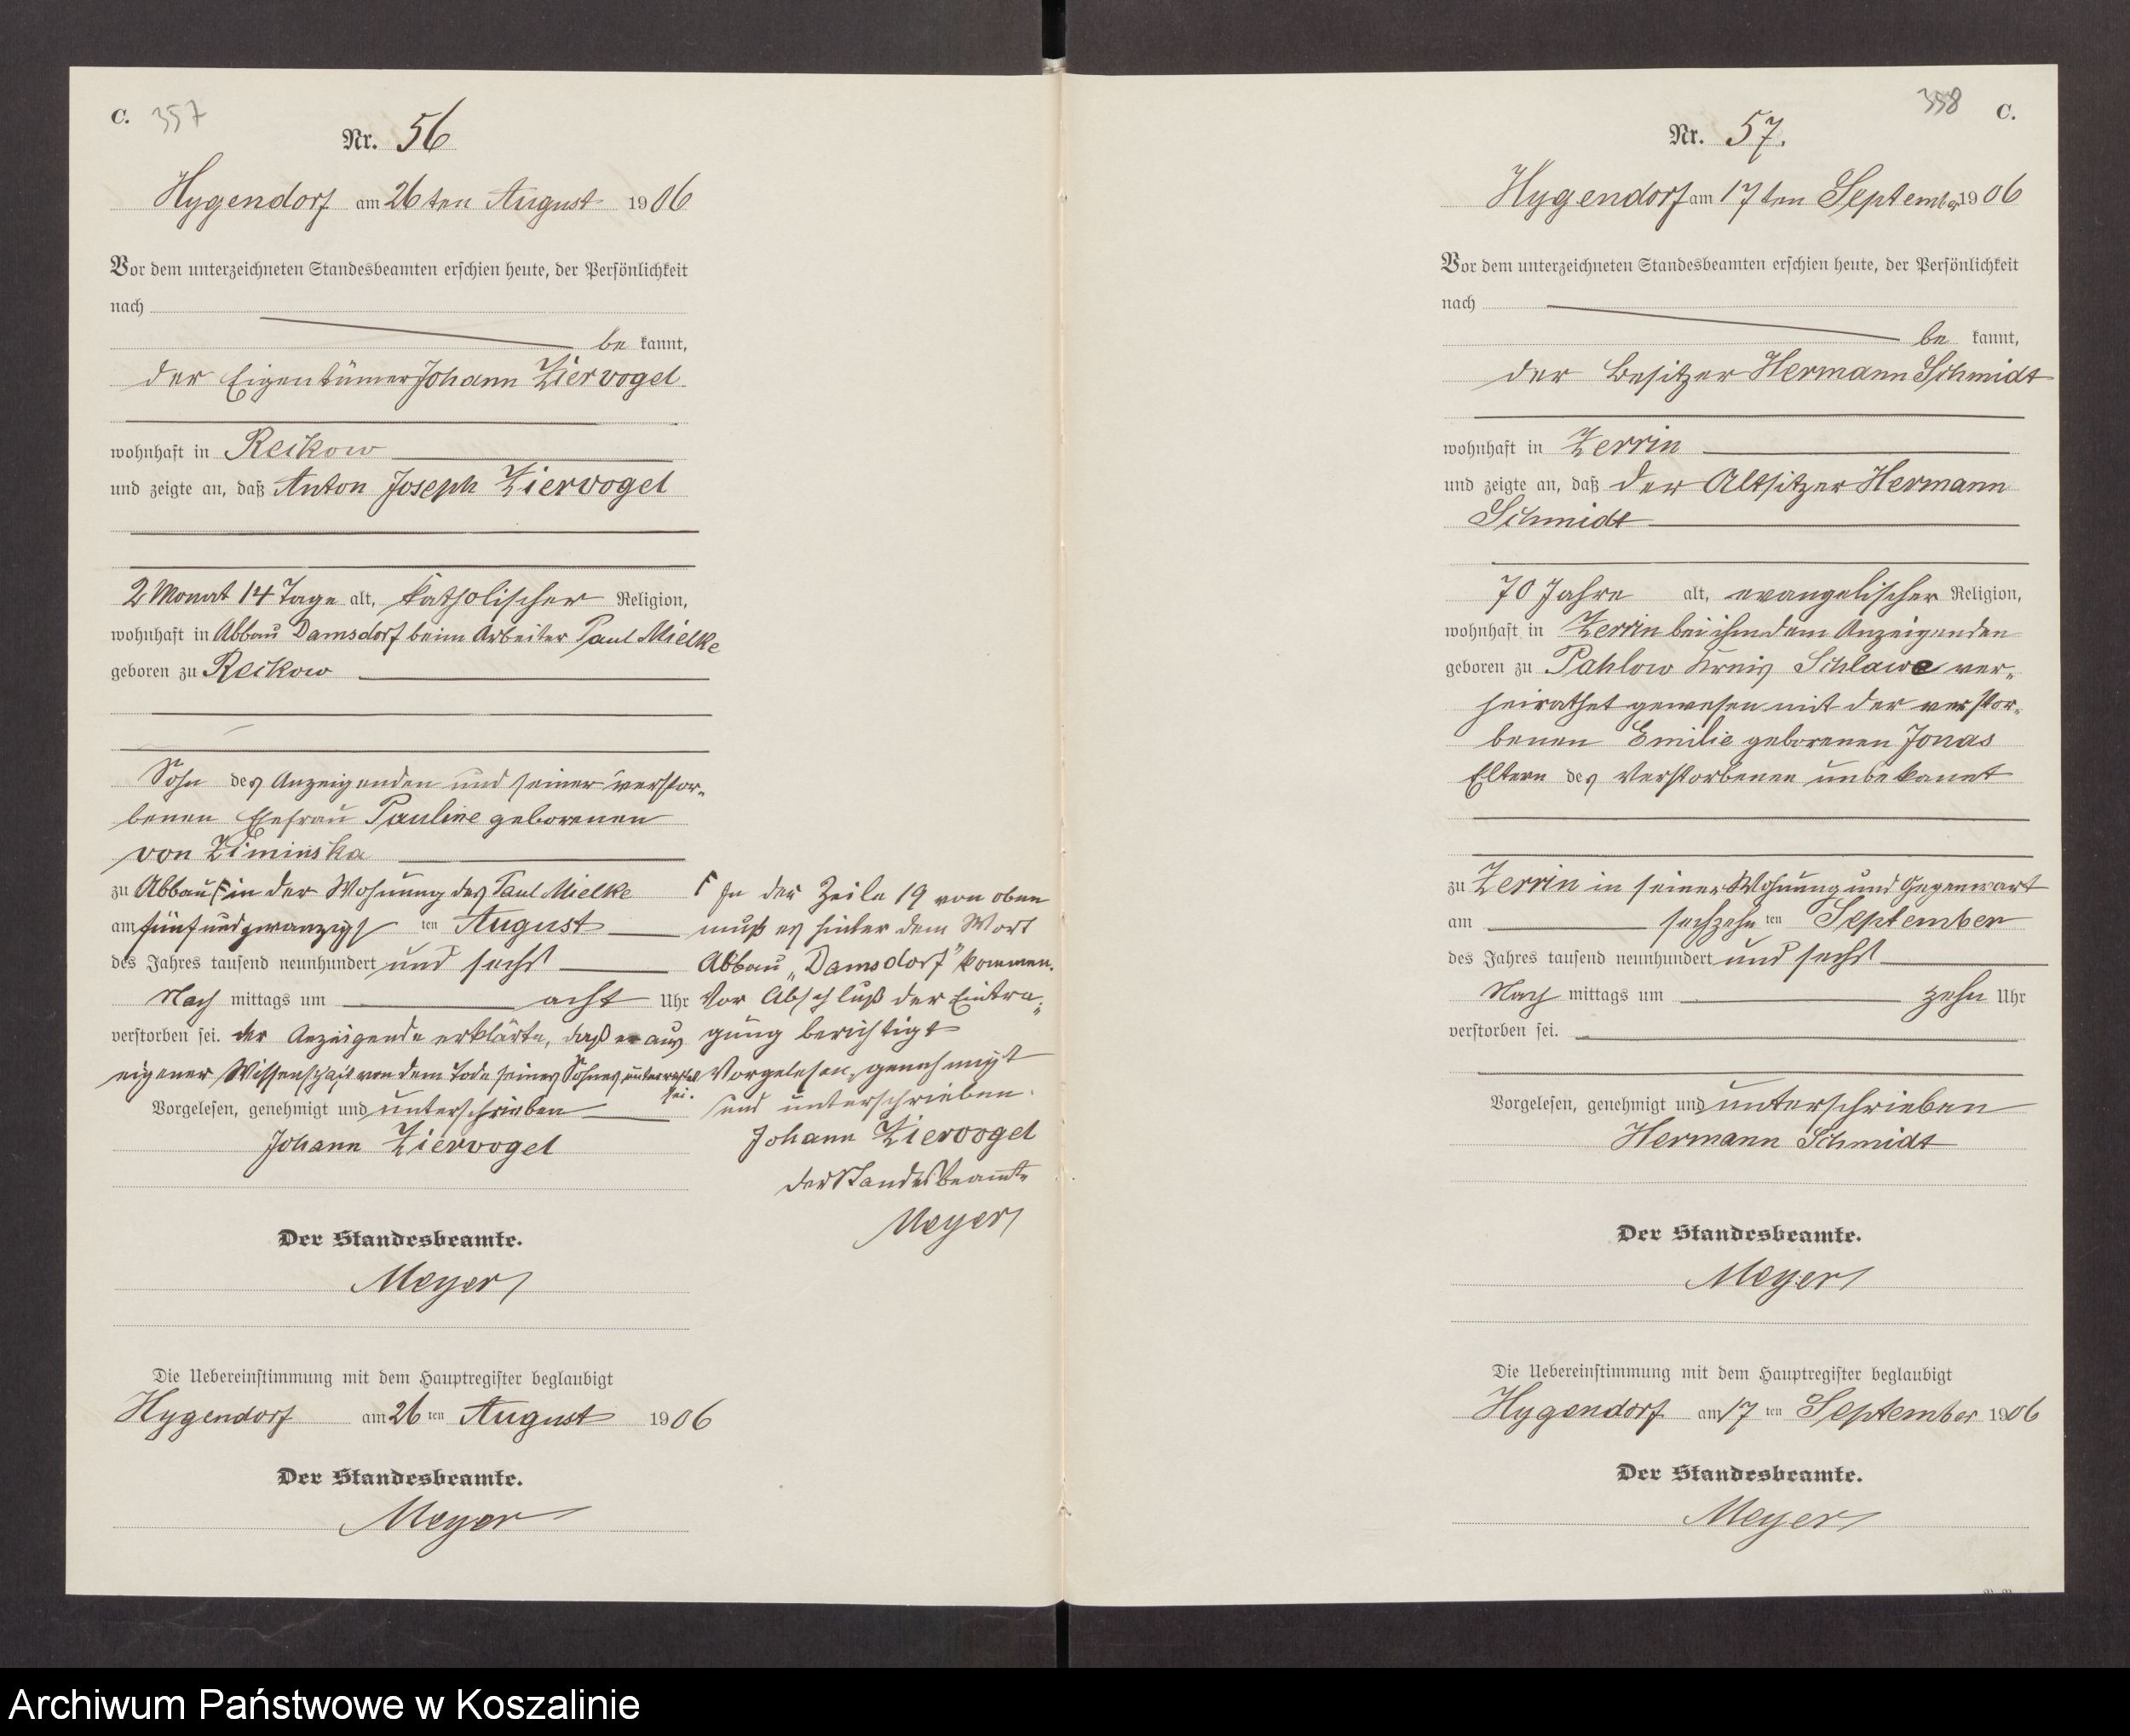 C. 357
Nr. 56
Hygendorf am 26ten August 1906
Vor dem unterzeichneten Standesbeamten erschien heute, der Persönlichkeit
nach
be kannt,
der Eigentümer Johann Ziervogel
wohnhaft in Reckow
und zeigte an, daß Anton Joseph Ziervogel
2 Monat 14 Tage alt, katholischer Religion,
wohnhaft in Abbau Damsdorf beim Arbeiter Paul Mielke
geboren zu Reckow
Sohn des Anzeigenden und seiner verstor-
benen Ehefrau Pauline geborenen
von Ziminska
zu Abbau Γ in der Wohnung des Paul Mielke
am fünf und zwanzigs ten August
des Jahres tausend neunhundert und sechs
Nach mittags um acht Uhr
verstorben sei. der Anzeigende erklärte, daß er aus
eigener Wissenschaft von dem Tode seines Sohnes unterrichtet
sei.
Vorgelesen, genehmigt und unterschrieben
Johann Ziervogel
Der Standesbeamte.
Meyer
Die Uebereinstimmung mit dem Hauptregister beglaubigt
Hygendorf am 26 ten August 1906
Der Standesbeamte.
Meyer
Γ In der Zeile 19 von oben
muß es hinter dem Wort
Abbau „Damsdorf" kommen.
Vor Abschluß der Eintra-
gung berichtigt
Vorgelesen, genehmigt
und unterschrieben.
Johann Ziervogel
der Standesbeamte
Meyer
358 C.
Nr. 57.
Hygendorf am 17ten September 1906
Vor dem unterzeichneten Standesbeamten erschien heute, der Persönlichkeit
nach
be kannt,
der Besitzer Hermann Schmidt
wohnhaft in Zerrin
und zeigte an, daß der Altsitzer Hermann
Schmidt
70 Jahre alt, evangelischer Religion,
wohnhaft in Zerrin bei ihm dem Anzeigenden
geboren zu Pahlow Kreis Schlawe ver-
heirathet gewesen mit der verstor-
benen Emilie geborenen Jonas
Eltern des Verstorbenen unbekannt
zu Zerrin in seiner Wohnung und Gegenwart
am sechzehn ten September
des Jahres tausend neunhundert und sechs
Nach mittags um zehn Uhr
verstorben sei.
Vorgelesen, genehmigt und unterschrieben
Hermann Schmidt
Der Standesbeamte.
Meyer
Die Uebereinstimmung mit dem Hauptregister beglaubigt
Hygendorf am 17 ten September 1906
Der Standesbeamte.
Meyer
Archiwum Państwowe w Koszalinie